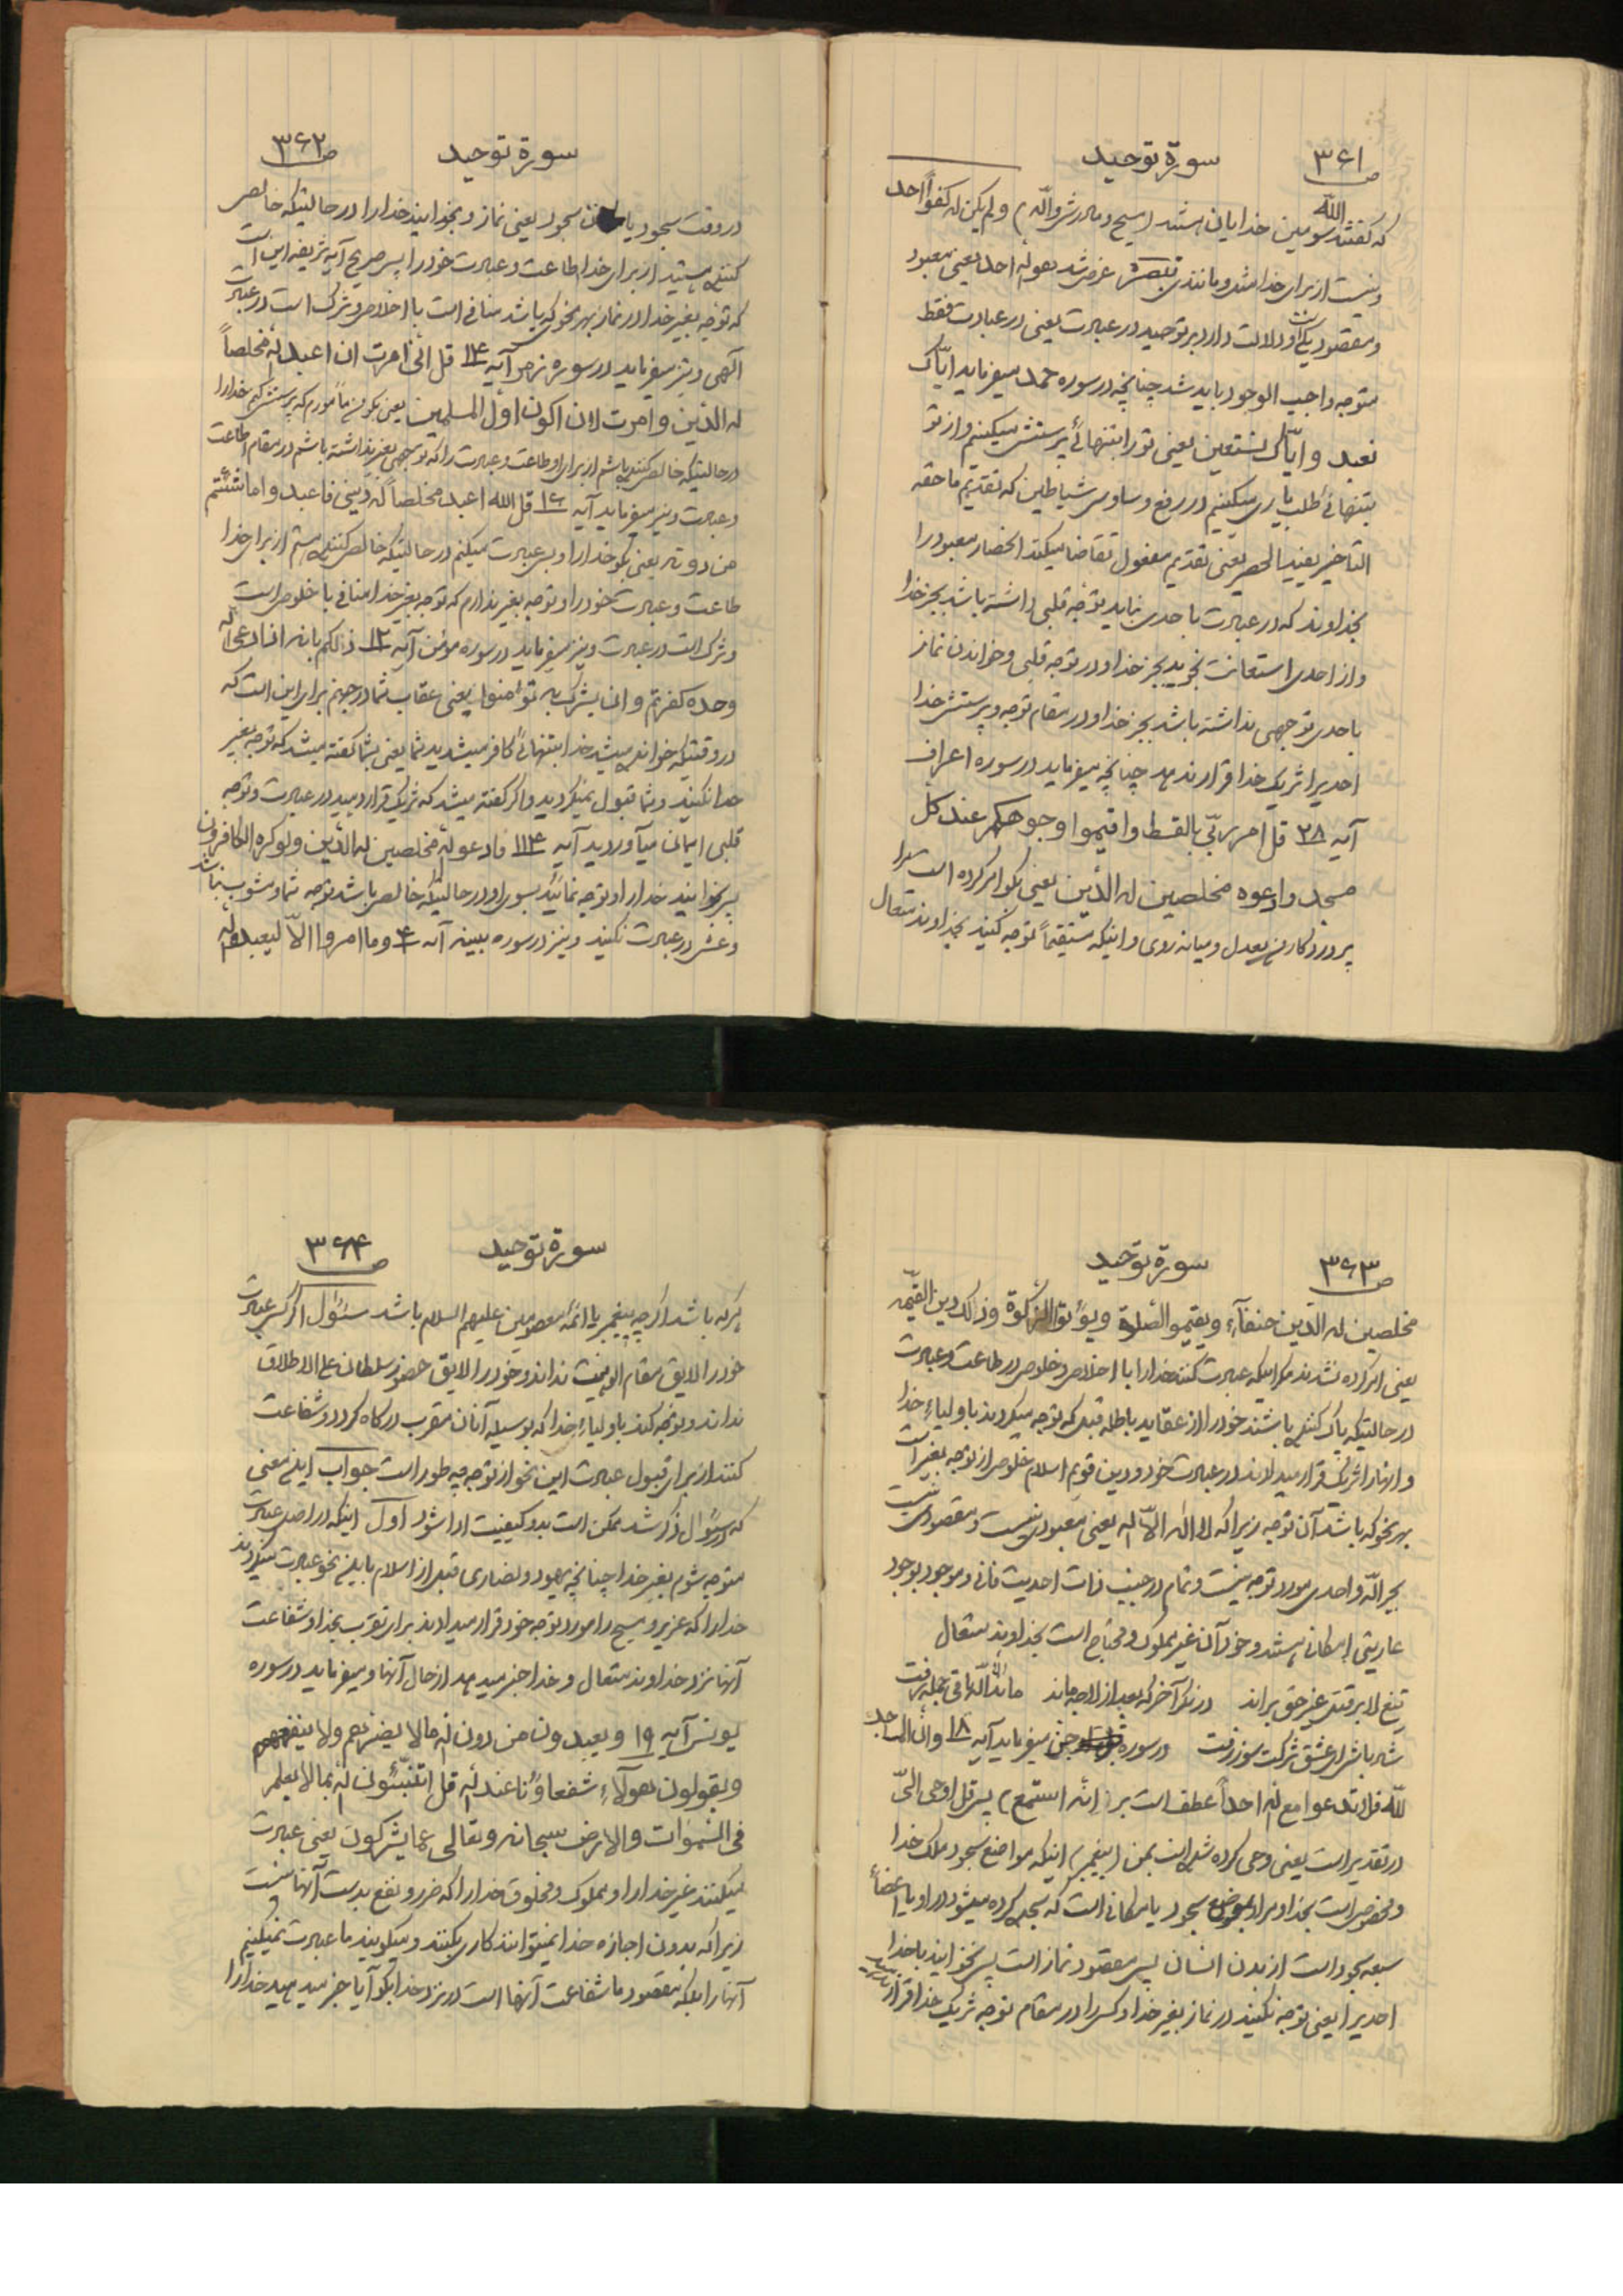 ص ۳۶۱
سورة توحید
که گفتند الله سومین خدایان هستند (مسیح و مادرش و اللّه) و لم یکن له کفواً احد
و نیست از برای خدا مثل و مانندی تبصره عرض شد هو الله احد یعنی معبود
و مقصود یکی است و دلالت دارد بر توحید در عبادت یعنی در عبادت فقط
متوجه واجب الوجود باید شد چنانچه در سوره حمد میفرماید ایّاک
نعبد و ایّاک نستعین یعنی تو را بتنهائی پرستش میکنیم و از تو
بتنهائی طلب یاری میکنیم در رفع وساوس شیاطین که تقدیم ما حقه
التاخیر یفید الحصر یعنی تقدیم مفعول تقاضا میکند انحصار معبود را
بخداوند که در عبادت باحدی نباید توجه قلبی داشته باشد بجز خدا
و از احدی استعانت نجوید بجز خدا و در توجه قلبی و خواندن نماز
باحدی توجهی نداشته باشد بجز خدا و در مقام توجه و پرستش خدا
احدیرا شریک خدا قرار ندهد چنانچه میفرماید در سوره اعراف
آیه ۲۸ قل امر ربّی بالقسط و اقیموا وجوهکم عند کل
مسجد وادعوه مخلصین له الدّین یعنی بگو امر کرده است
پروردگار من بعدل و میانه روی و اینکه مستقیماً توجه کنید بخداوند متعال
ص ۳۶۲
سورة توحید
در وقت سجود یا سجود یعنی نماز و بخوانید خدا را در حالتیکه خالص
کننده هستید از برای خدا اطاعت و عبادت خود را پس صریح آیه شریفه این است
که توجه بغیر خدا در نماز بهر نحو که باشد منافی است با اخلاص و شرک است در عبادت
آلهی و نیز میفرماید در سوره زمر آیه ۱۴ قل انّی امرت ان اعبد الله مخلصاً
له الدّین و امرت لان اکون اوّل المسلمین یعنی بگو من مأمورم که پرستش کنم خدا را
در حالتیکه خالص کننده باشم از برای او طاعت و عبادت را که توجهی بغیر نداشته باشم در مقام اطاعت
و عبادت و نیز میفرماید آیه ۱۶ قل الله اعبد مخلصاً له دینی فاعبدوا ما شئتم
من دونه یعنی بگو خدا را و بس عبادت میکنم در حالتیکه خالص کننده هستم از برای خدا
طاعت و عبادت خود را و توجه بغیر ندارم که توجه بغیر خدا منافی با خلوص است
و شرک است در عبادت و نیز میفرماید در سوره مؤمن آیه ۱۲ ذلکم بانه اذا دعی الله
وحده کفرتم و ان یشرک به تؤمنوا یعنی عقاب شما در جهنم برای این است که
در وقتیکه خوانده میشد خدا بتنهائی کافر میشدید شما یعنی بشما گفته میشد که توجه بغیر
خدا نکنید و شما قبول نمیکردید و اگر گفته میشد که شریک قرار دهید در عبادت و توجه
قلبی ایمان میآوردید آیه ۱۴ فادعو الله مخلصین له الدّین ولو کره الکافرون
پس بخوانید خدا را و توجه نمائید بسوی او در حالتیکه خالص باشد توجه شما و مشوب نباشد
و غش در عبادت نکنید و نیز در سوره بینه آیه ۴ و ما امروا الاّ لیعبدوا الله
ص ۳۶۳
سورة توحید
مخلصین له الدّین حنفآء و یقیمو الصّلوة و یؤتو الزّکوة و ذلک دین القیّمه
یعنی امر کرده نشدند مگر اینکه عبادت کنند خدا را با اخلاص و خلوص در طاعت و عبادت
در حالتیکه پاک کننده باشند خود را از عقاید باطله قبلی که توجه میکردند باولیاء خدا
و آنها را شریک قرار میدادند در عبادت خود و دین قویم اسلام خلوص از توجه بغیر است
بهر نحو که باشد آن توجه زیرا که لا اله الاّ الله یعنی معبودی نیست و مقصودی نیست
بجز اللّه و احدی مورد توجه نیست و تمام در جنب ذات احدیت فانی و موجود بوجود
عاریتی امکانی هستند و خود آن غیر مملوک و محتاج است بخداوند متعال
تیغ لا بر قتل غیر حق براند در نگر آخر که بعد از لا چه ماند ماند الا الله باقی جمله رفت
شاد باش ای عشق شرکت سوز زفت در سوره جن میفرماید آیه ۱۸ و انّ المساجد
للّه فلا تدعوا مع الله احداً عطف است بر (انّه استمع) پس قل اوحی الیّ
در تقدیر است یعنی وحی کرده شده است بمن (پیغمبر) اینکه مواضع سجود ملک خدا
و مخصوص است بخدا و مراد بموضع سجود یا مکانی است که سجده کرده میشود در او یا اعضأ
سبعه سجود است از بدن انسان پس مقصود نماز است پس نخوانید با خدا
احدیرا یعنی توجه نکنید در نماز بغیر خدا و کسی را در مقام توجه شریک خدا قرار
ص ۳۶۴
سورة توحید
هر که باشد اگر چه پیغمبر یا ائمّه معصومین علیهم السلام باشد سئوال اگر کسی عبادت
خود را لایق مقام الوهیت نداند و خود را لایق حضور سلطان علی الاطلاق
نداند و توجه کند باولیاء خدا که بوسیله آنان مقرب درگاه گردد و شفاعت
کنند از برای قبول عبادت این نحو از توجه چه طور است جواب این معنی
که در سئوال ذکر شد ممکن است بدو کیفیت ادا شود اول اینکه در اصل عبادت
متوجه بشوم بغیر خدا چنانچه یهود و نصاری قبل از اسلام باین نحو عبادت میکردند
خدا را که عزیر و مسیح را مورد توجه خود قرار میدادند برای تقرب بخدا و شفاعت
آنها نزد خداوند متعال و خدا خبر میدهد از حال آنها و میفرماید در سوره
یونس آیه ۱۹ و یعبدون من دون الله ما لا یضرّهم ولا ینفعهم
و یقولون هولآء شفعاؤنا عند الله قل اتنبّئون الله بما لا یعلم
فی السّموات و الارض سبحانه و تعالی عما یشرکون یعنی عبادت
میکنند غیر خدا را و مملوک و مخلوق خدا را که ضرر و نفع بدست آنها نیست
زیرا که بدون اجازه خدا نمیتوانند کاری بکنند و میگویند ما عبادت نمیکنیم
آنها را بلکه مقصود ما شفاعت آنها است در نزد خدا بگو آیا خبر میدهید خدا را